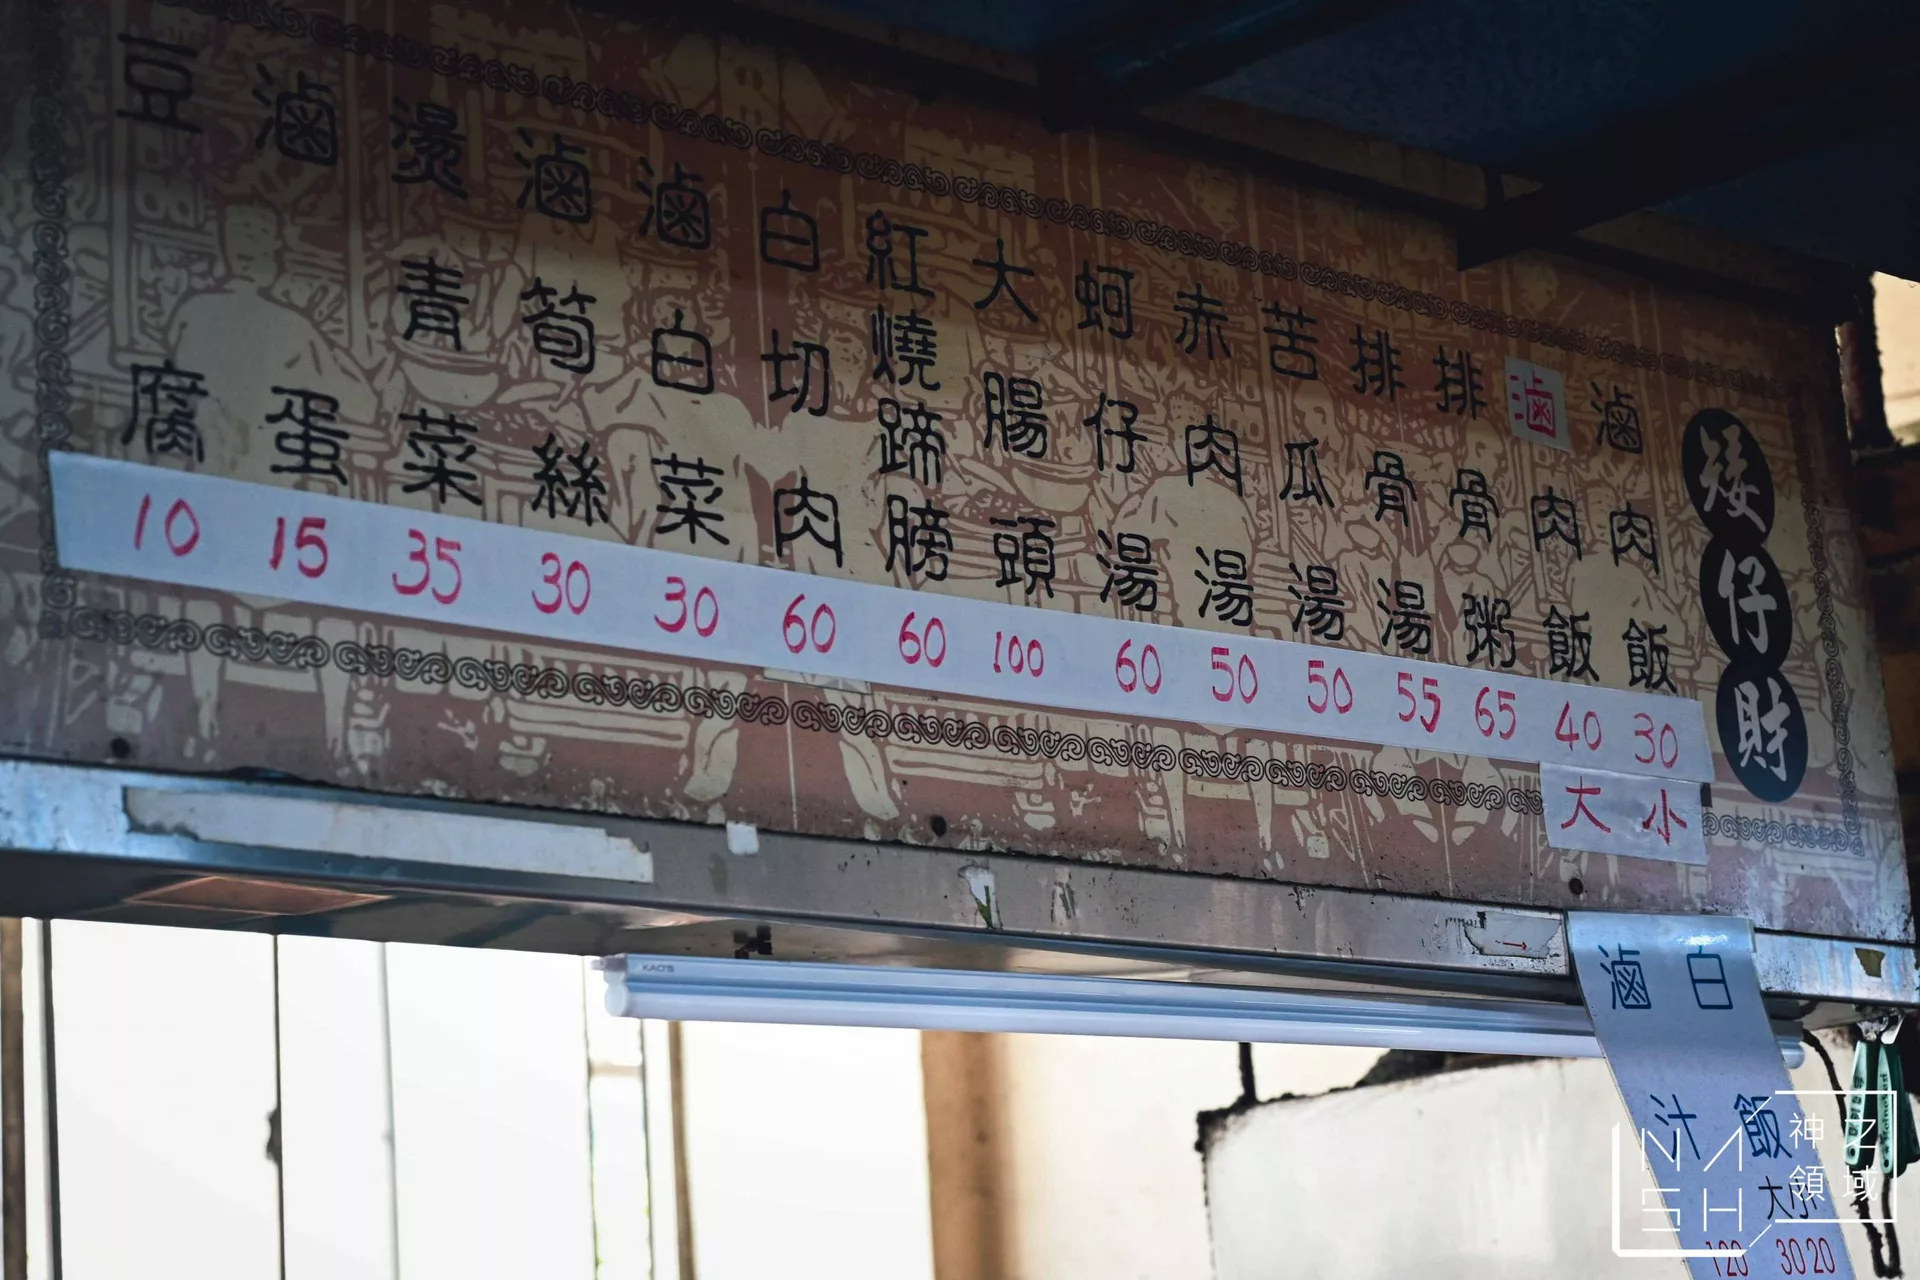 矮仔財
滷肉飯 30 小
滷肉飯 40 大
排骨粥 65
排骨湯 55
苦瓜湯 50
赤肉湯 50
蚵仔湯 60
大腸頭 100
紅燒蹄膀 60
白切肉 60
滷白菜 30
滷筍絲 30
燙青菜 35
滷蛋 15
豆腐 10
白飯
大小
3020
滷汁
120
KAO'S
NASH
神之領域